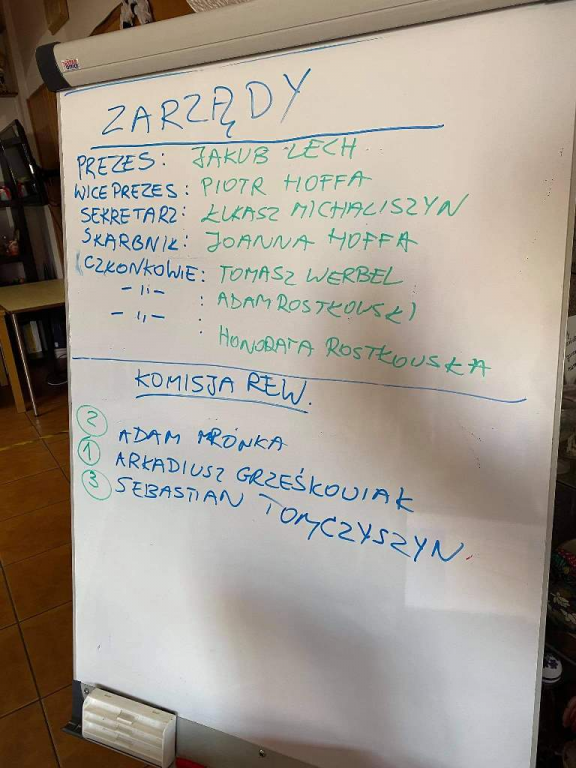 ZARZĄDY
PREZES: JAKUB LECH
WICEPREZES: PIOTR HOFFA
SEKRETARZ: ŁUKASZ MICHALISZYN
SKARBNIK: JOANNA HOFFA
CZŁONKOWIE: TOMASZ WERBEL
-"- : ADAM ROSTKOWSKI
-"- : HONORATA ROSTKOWSKA
KOMISJA REW.
2 ADAM MRÓNKA
1 ARKADIUSZ GRZEŚKOWIAK
3 SEBASTIAN TOMCZYSZYN